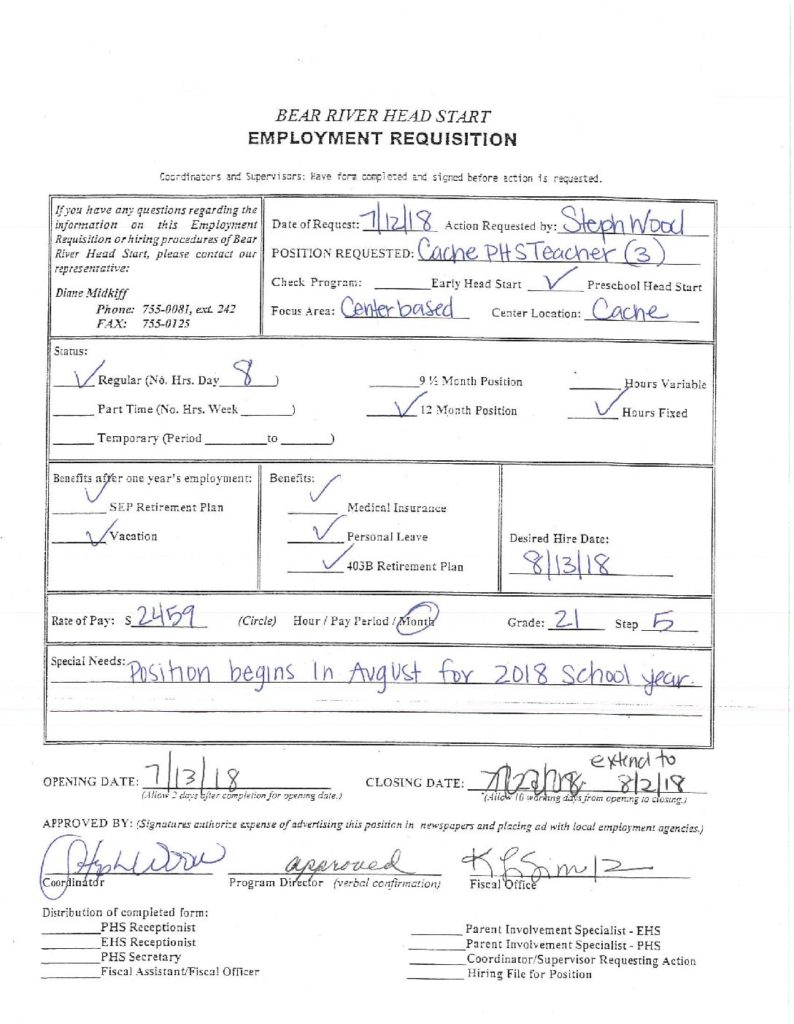 BEAR RIVER HEAD START
EMPLOYMENT REQUISITION
Coordinators and Supervisors: Have form completed and signed before action is requested.
If you have any questions regarding the
information on this Employment
Requisition or hiring procedures of Bear
River Head Start, please contact our
representative:
Diane Midkiff
Phone: 755-0081, ext. 242
FAX: 755-0125
Date of Request: 7/12/18 Action Requested by: Steph Wood
POSITION REQUESTED: Cache PHS Teacher (3)
Check Program: ______ Early Head Start ✓ Preschool Head Start
Focus Area: Center based Center Location: Cache
Status:
✓ Regular (No. Hrs. Day 8 ) ______ 9 ½ Month Position ______ Hours Variable
______ Part Time (No. Hrs. Week ______) ✓ 12 Month Position ✓ Hours Fixed
______ Temporary (Period ______ to ______)
Benefits after one year's employment:
✓ SEP Retirement Plan
✓ Vacation
Benefits:
✓ Medical Insurance
✓ Personal Leave
✓ 403B Retirement Plan
Desired Hire Date:
8/13/18
Rate of Pay: $ 2459 (Circle) Hour / Pay Period / Month Grade: 21 Step 5
Special Needs: Position begins in August for 2018 school year.
extend to
OPENING DATE: 7/13/18 CLOSING DATE: 8/2/18
(Allow 2 days after completion for opening date.) (Allow 10 working days from opening to closing.)
APPROVED BY: (Signatures authorize expense of advertising this position in newspapers and placing ad with local employment agencies.)
approved
Coordinator Program Director (verbal confirmation) Fiscal Office
Distribution of completed form:
______ PHS Receptionist
______ EHS Receptionist
______ PHS Secretary
______ Fiscal Assistant/Fiscal Officer
______ Parent Involvement Specialist - EHS
______ Parent Involvement Specialist - PHS
______ Coordinator/Supervisor Requesting Action
______ Hiring File for Position